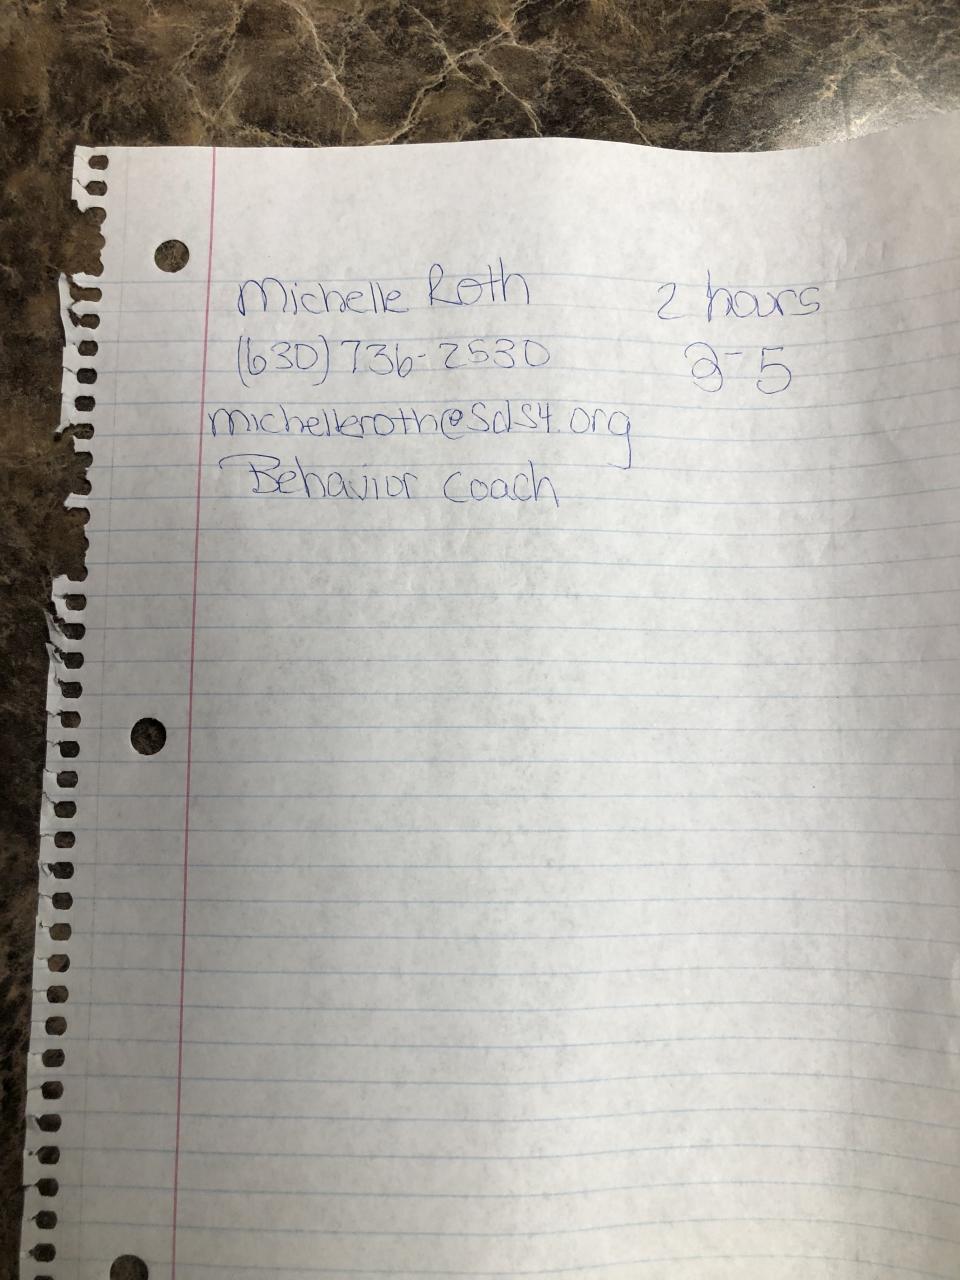 Michelle Roth 2 hours
(630) 736-2530 2-5
michelleroth@sds4.org
Behavior coach